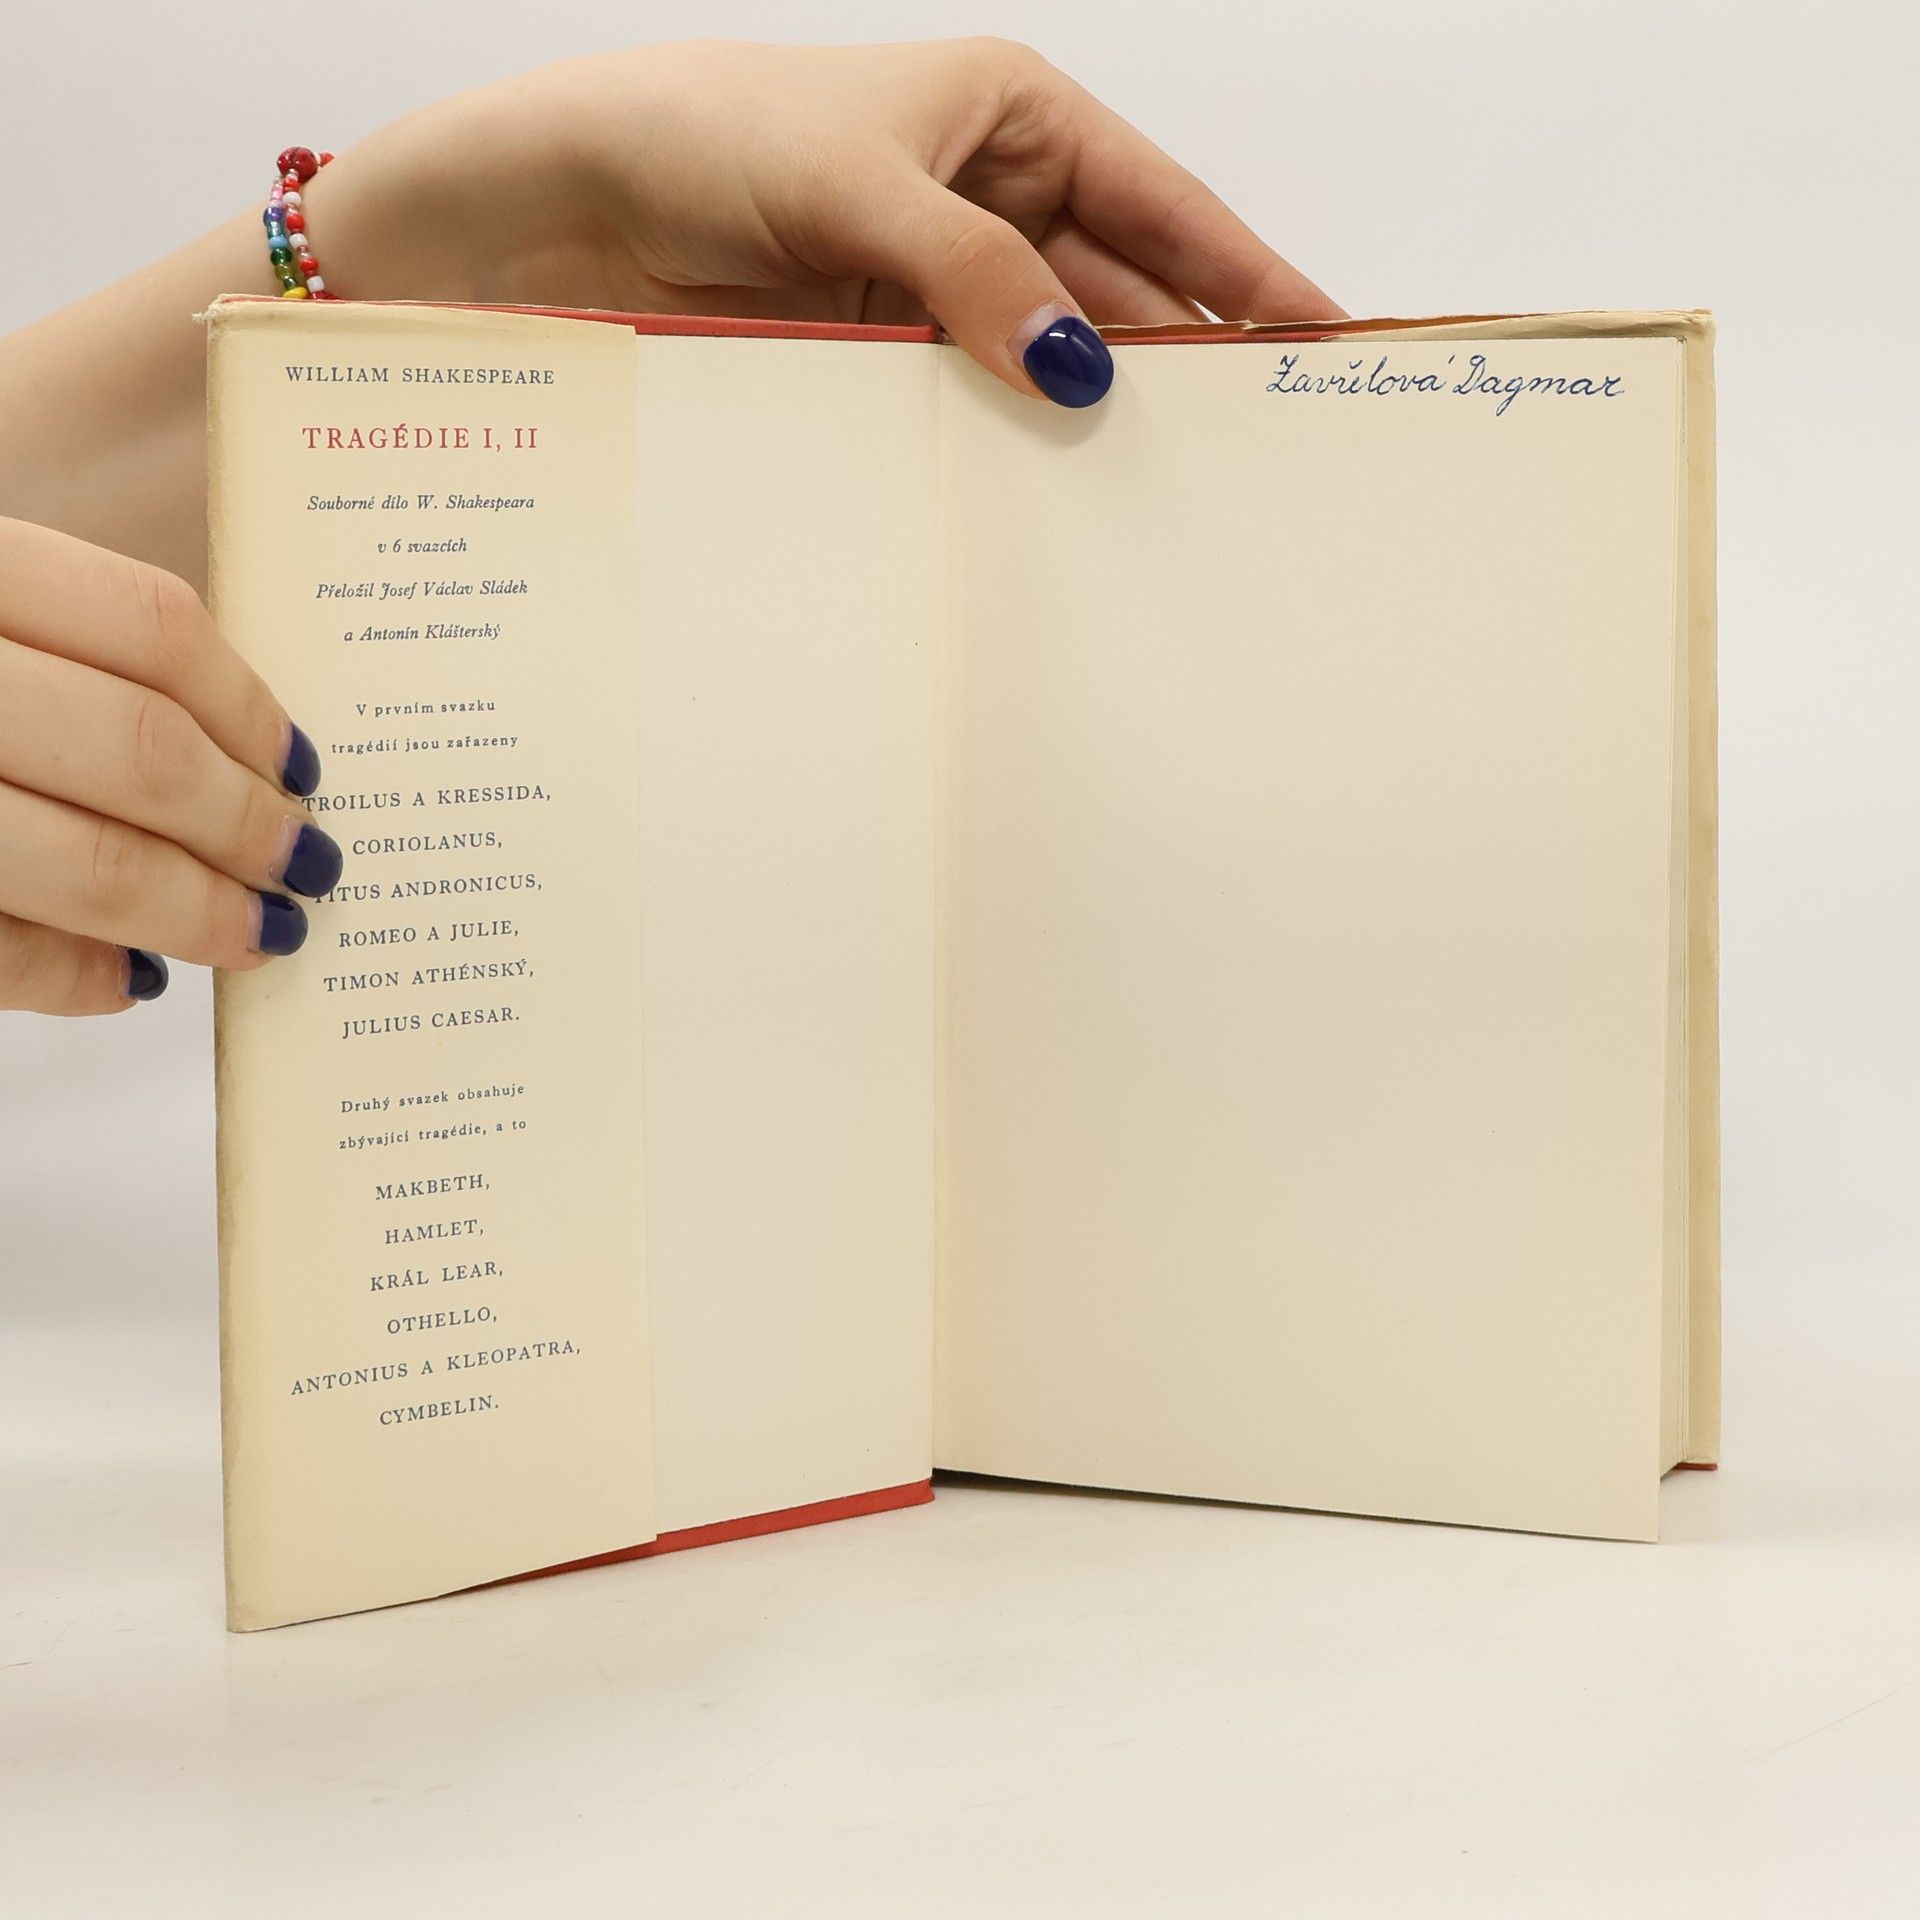 WILLIAM SHAKESPEARE
TRAGÉDIE I, II
Souborné dílo W. Shakespeara
v 6 svazcích
Přeložil Josef Václav Sládek
a Antonín Klášterský
V prvním svazku
tragédií jsou zařazeny
TROILUS A KRESSIDA,
CORIOLANUS,
TITUS ANDRONICUS,
ROMEO A JULIE,
TIMON ATHÉNSKÝ,
JULIUS CAESAR.
Druhý svazek obsahuje
zbývající tragédie, a to
MAKBETH,
HAMLET,
KRÁL LEAR,
OTHELLO,
ANTONIUS A KLEOPATRA,
CYMBELIN.
Zavřelová Dagmar